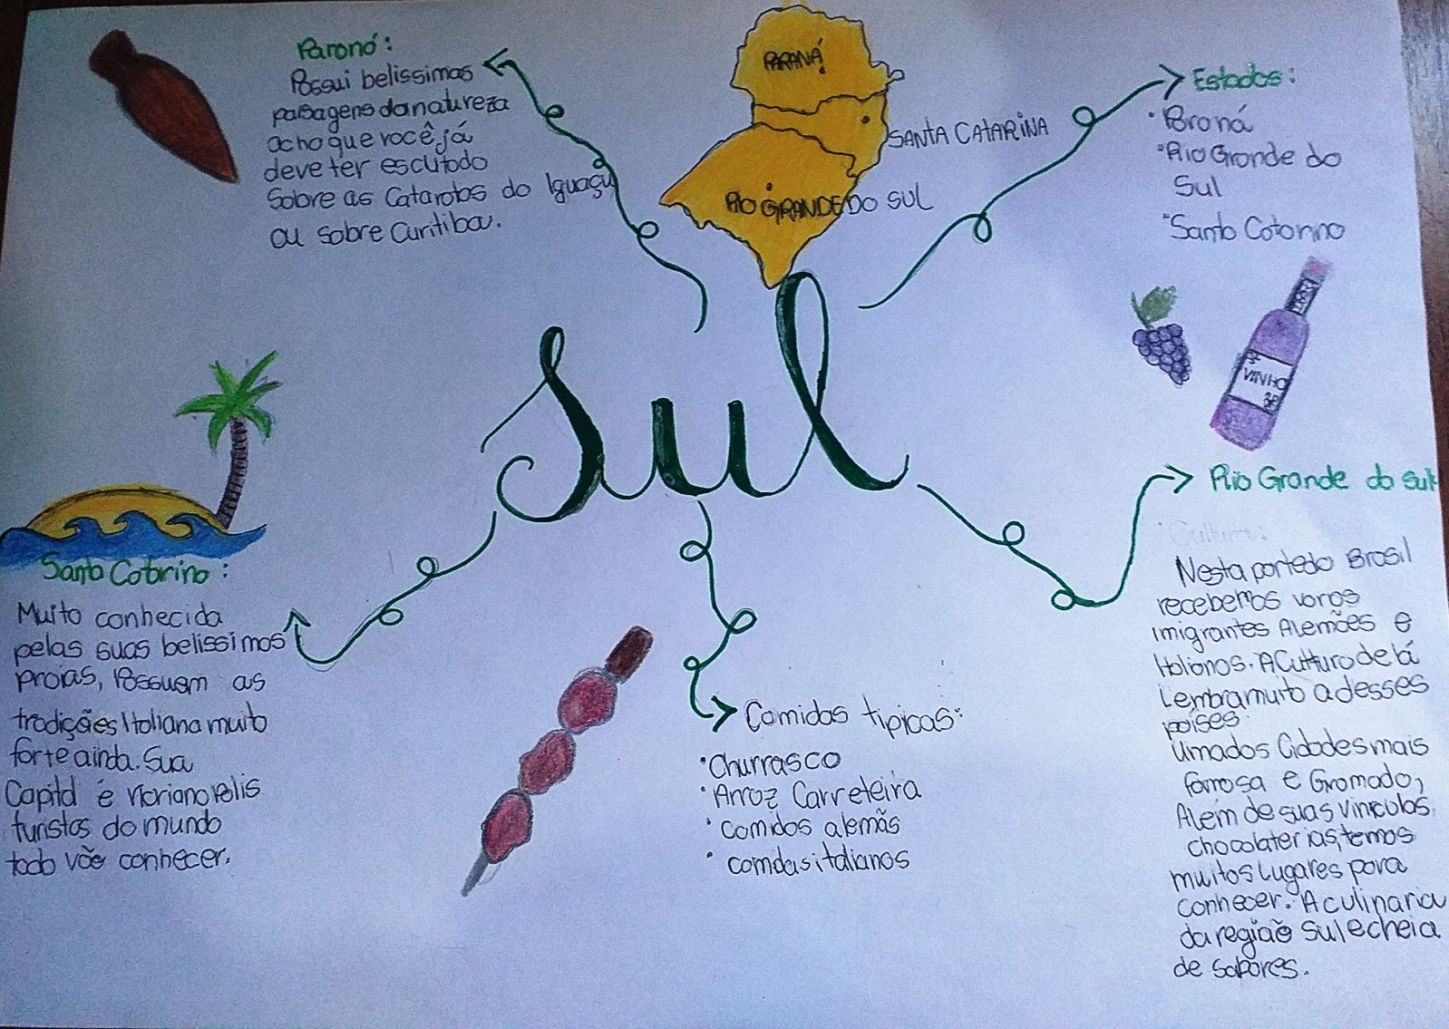 Paraná:
Possui belissimas
paisagens da natureza
acho que você já
deve ter escutado
Sobre as Cataratas do Iguaçu
ou sobre Curitiba.
PARANÁ
SANTA CATARINA
RIO GRANDE DO SUL
Estados:
• Paraná
• Rio Grande do
Sul
• Santa Catarina
Sul
VINHO
Santa Catarina:
Muito conhecida
pelas suas belissimas
praias, Possuem as
tradições Italiana muito
forte ainda. Sua
Capital é Florianopolis
turistas do mundo
todo vão conhecer.
Comidas tipicas:
• Churrasco
• Arroz Carreteira
• comidas alemãs
• comidas italianas
Rio Grande do Sul
Cultura:
Nesta parte do Brasil
recebemos varos
imigrantes Alemães e
Italianos. A Cultura de lá
Lembra muito a desses
países.
Uma das Cidades mais
famosa e Gramado,
Além de suas vinicolas
chocolaterias, temos
muitos lugares para
conhecer. A culinaria
da região sul e cheia
de sabores.